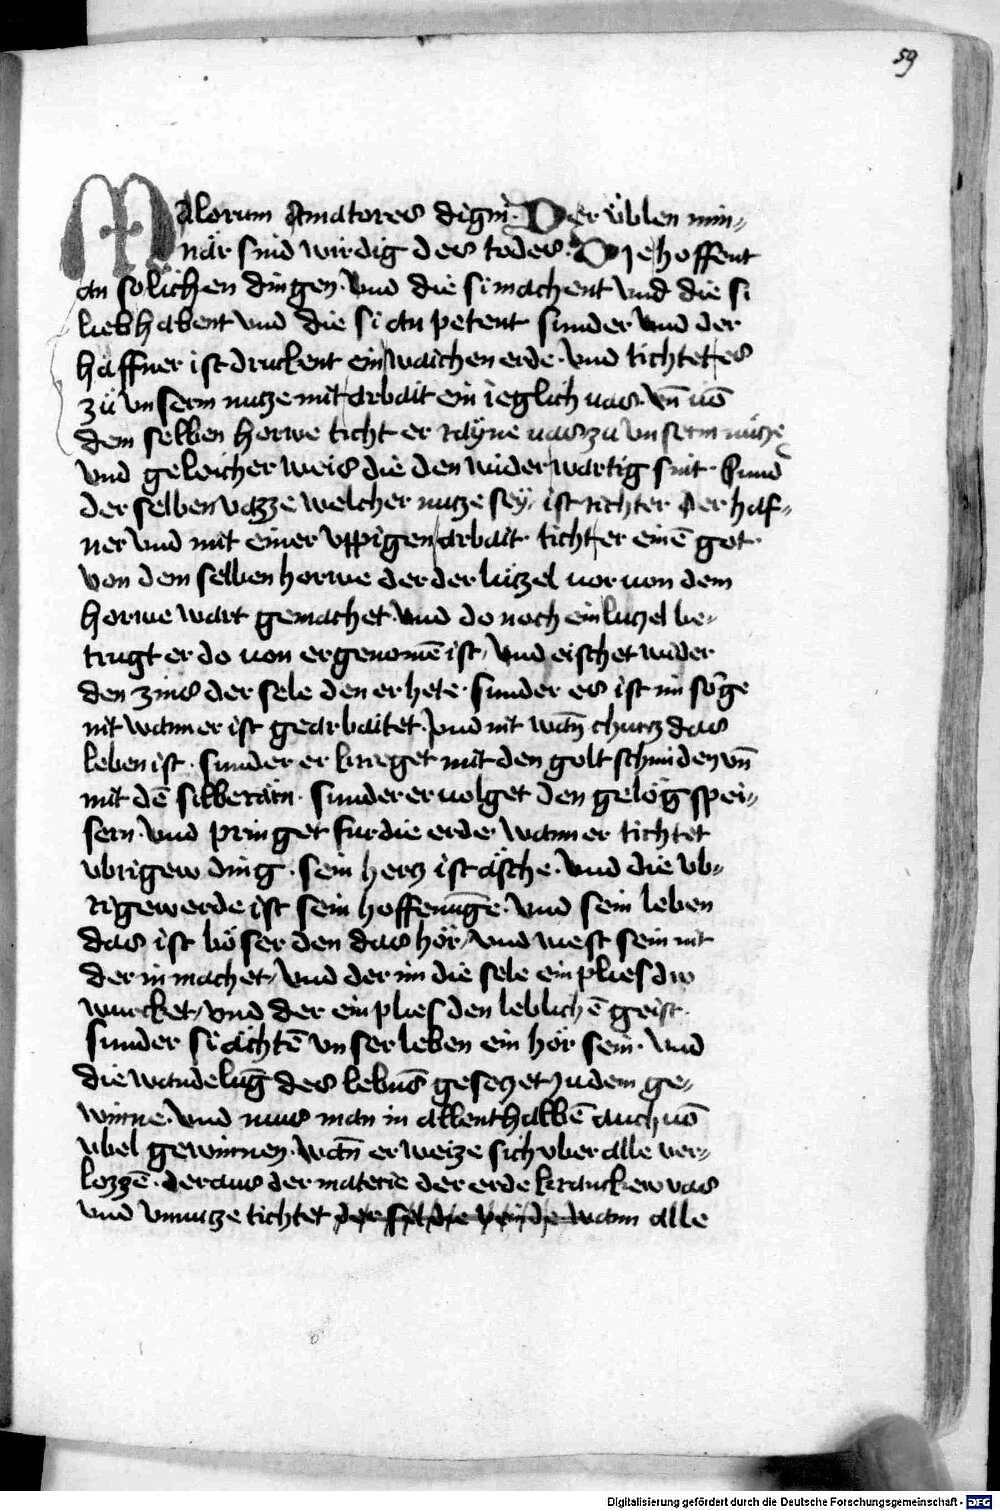 59
Malorum Amatores digni. Der üblen min=
när sind wirdig des todes. Die hoffent
an sölichen dingen. vnd die si machent vnd die si
liebhabent vnd die si an petent sunder vnd der
haffner ist druckent ein waichen erde. vnd tichtet es
zü vnserm nutze mit arbait ein ieglich uas. vn̄ uō
dem selben horwe ticht er rayne uas zu vnserm nütze
vnd geleicher weis die den widerwartig sint. Sund
der selben vazze welcher nutze sey, ist richter der haf=
ner vnd mit einer vppigen arbait. tichter einē got.
von dem selben horwe der der lützel uor uon dem
horwe wart gemachet. vnd do noch ein lutzel be=
trugt er do uon er genomē ist, vnd eischet wider
den zins der sele den er hete. sunder es ist im sorge
nit wann er ist gearbaitet. vnd nit wan̄ churtz das
leben ist. sunder er krieget mit den golt schmiden vn̄
mit dē silberärn. sunder er uolget den gelögspei=
sern. vnd pringet fur die erde. wann er tichtet
vbrigew ding. sein hertz ist äsche. vnd die vb=
rigew erde ist sein hoffenūge. vnd sein leben
das ist böser den das hör, vnd west sein nit
der in machet, vnd der im die sele ein plies diw
wurcket, vnd der ein plies den leblichē geist.
sunder si ächtē vnser leben ein hör sein. vnd
die wandelūg des lebūs gesetzet zu dem ge=
winne. vnd mus man in allenthalbē auch uō
vbel gewinnen. wan̄ er weize sich vber alle ver=
lozzē. der aus der materie der erde kranckew vas
vnd vnnutze tichtet wann alle
Digitalisierung gefördert durch die Deutsche Forschungsgemeinschaft - DFG